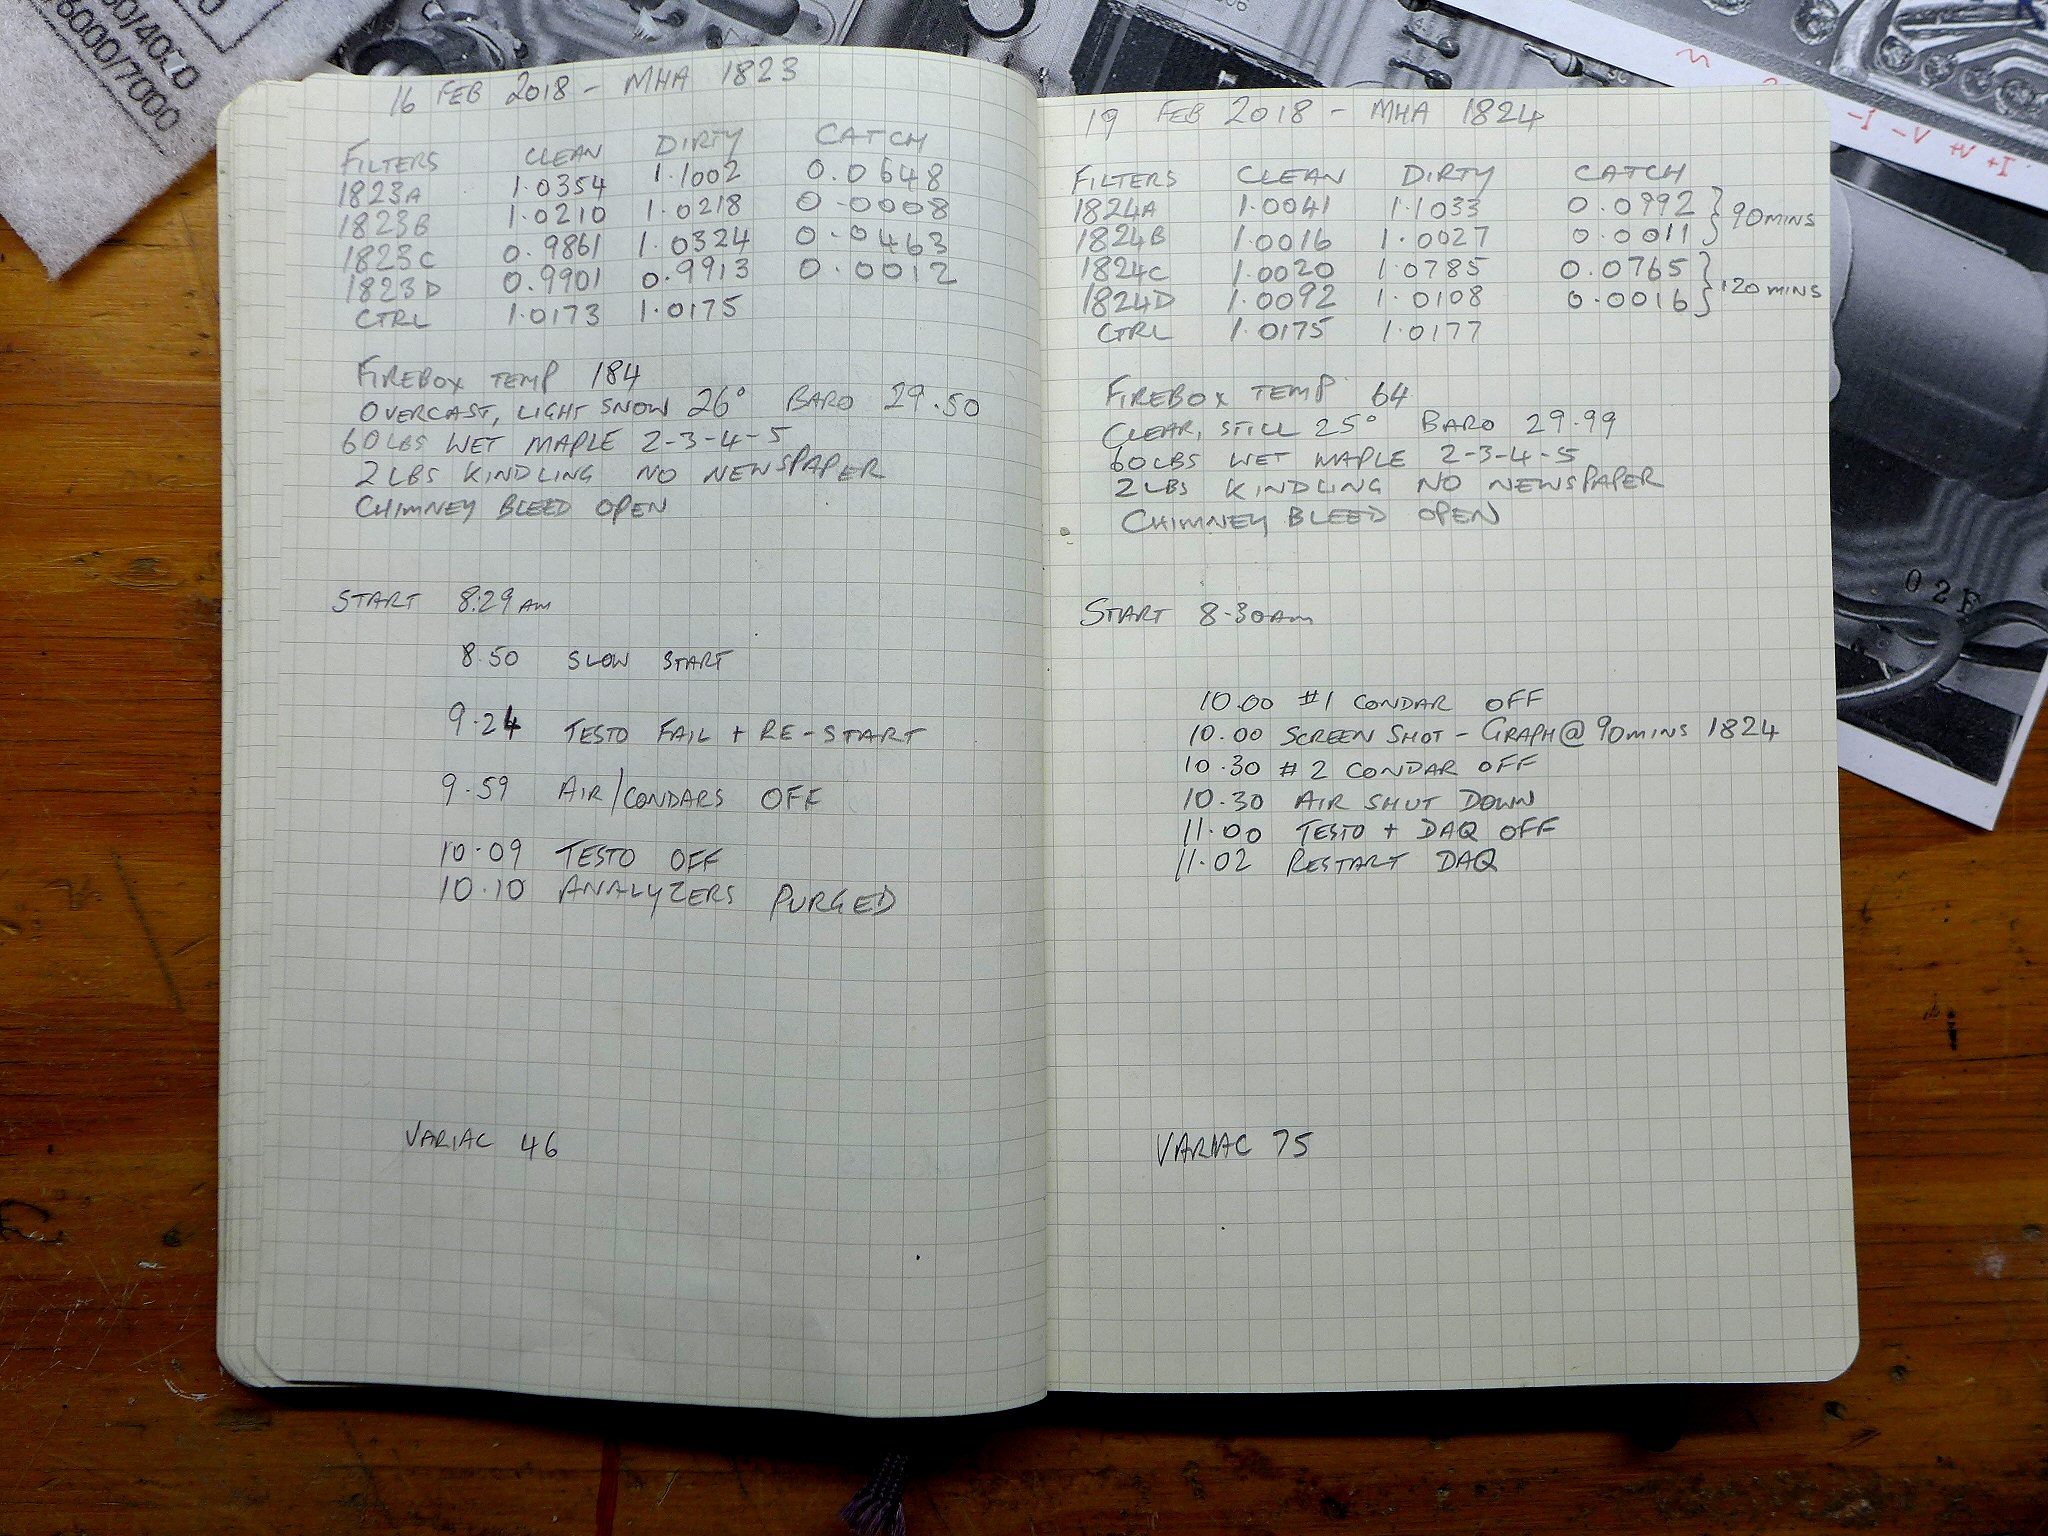 16 FEB 2018 - MHA 1823
FILTERS CLEAN DIRTY CATCH
1823A 1.0354 1.1002 0.0648
1823B 1.0210 1.0218 0.0008
1823C 0.9861 1.0324 0.0463
1823D 0.9901 0.9913 0.0012
CTRL 1.0173 1.0175
FIREBOX TEMP 184
OVERCAST, LIGHT SNOW 26° BARO 29.50
60LBS WET MAPLE 2-3-4-5
2LBS KINDLING NO NEWSPAPER
CHIMNEY BLEED OPEN
START 8:29AM
8.50 SLOW START
9.24 TESTO FAIL + RE-START
9.59 AIR/CONDARS OFF
10.09 TESTO OFF
10.10 ANALYZERS PURGED
VARIAC 46
19 FEB 2018 - MHA 1824
FILTERS CLEAN DIRTY CATCH
1824A 1.0041 1.1033 0.0992
1824B 1.0016 1.0027 0.0011
90MINS
1824C 1.0020 1.0785 0.0765
1824D 1.0092 1.0108 0.0016
120MINS
CTRL 1.0175 1.0177
FIREBOX TEMP 64
CLEAR, STILL 25° BARO 29.99
60LBS WET MAPLE 2-3-4-5
2LBS KINDLING NO NEWSPAPER
CHIMNEY BLEED OPEN
START 8.30AM
10.00 #1 CONDAR OFF
10.00 SCREEN SHOT - GRAPH@90MINS 1824
10.30 #2 CONDAR OFF
10.30 AIR SHUT DOWN
11.00 TESTO + DAQ OFF
11.02 RESTART DAQ
VARIAC 75
6000/7000
-I -V +V +I
02F